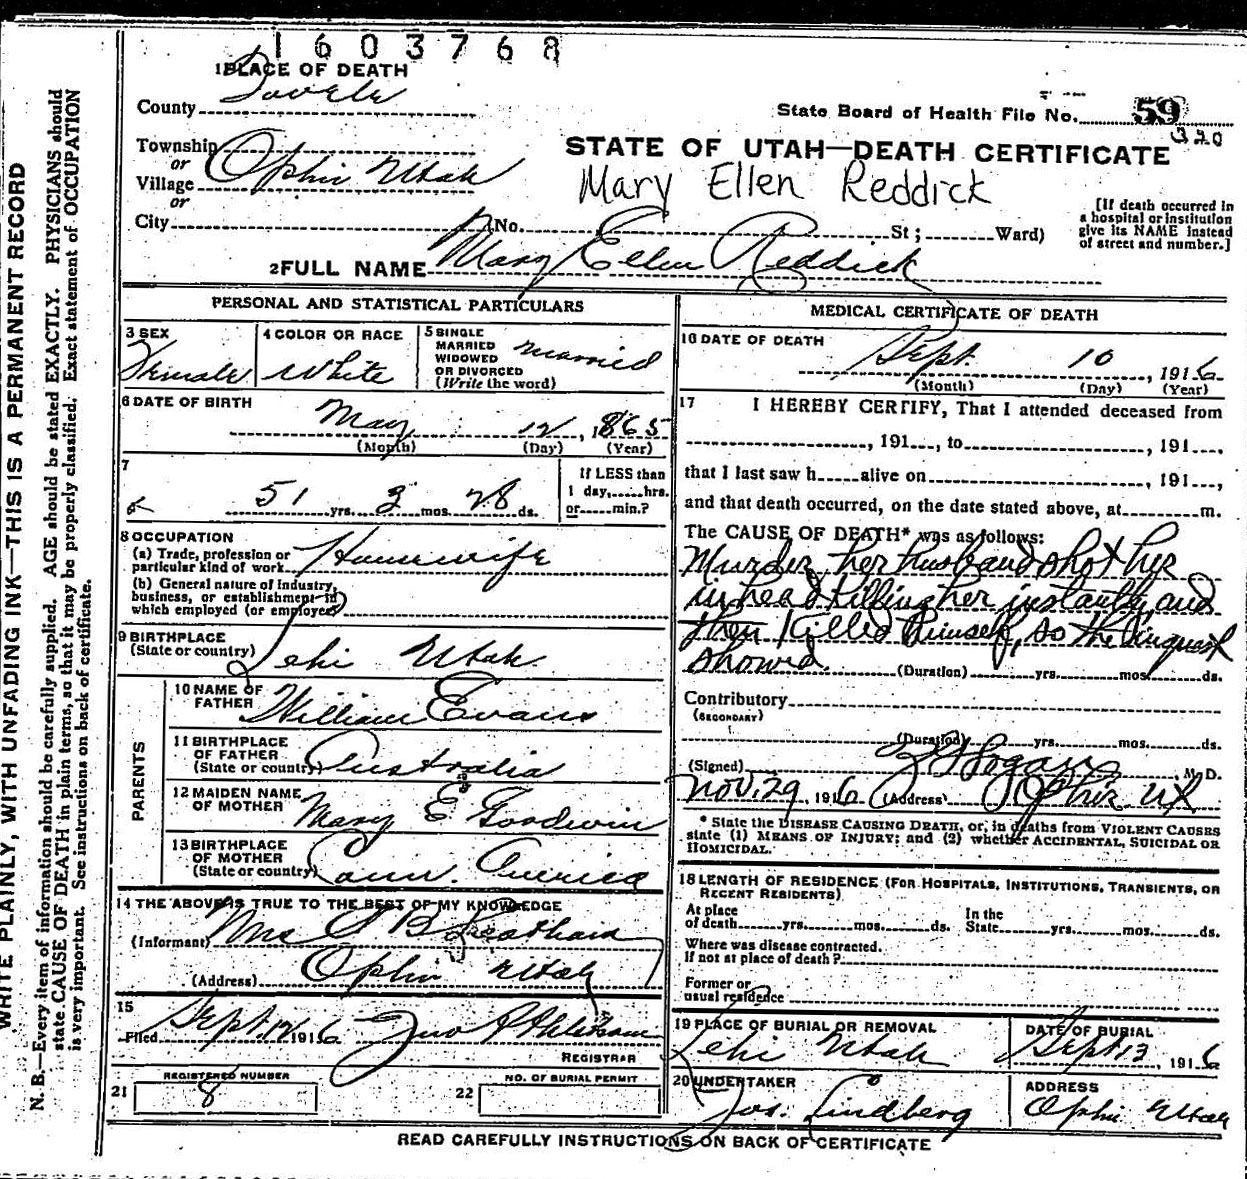 1603768
1 PLACE OF DEATH
County Tooele
State Board of Health File No. 59
320
Township
or
Village Ophir Utah
or
City (No. St; Ward)
STATE OF UTAH—DEATH CERTIFICATE
Mary Ellen Reddick
[If death occurred in
a hospital or institution
give its NAME instead
of street and number.]
2 FULL NAME Mary Ellen Reddick
PERSONAL AND STATISTICAL PARTICULARS
3 SEX
Female
4 COLOR OR RACE
White
5 SINGLE
MARRIED
WIDOWED
OR DIVORCED
(Write the word)
married
6 DATE OF BIRTH
May 12, 1865
(Month) (Day) (Year)
7
51 yrs. 3 mos. 28 ds.
If LESS than
1 day, hrs.
or min.?
8 OCCUPATION
(a) Trade, profession or
particular kind of work Housewife
(b) General nature of industry,
business, or establishment in
which employed (or employer)
9 BIRTHPLACE
(State or country) Lehi Utah.
PARENTS
10 NAME OF
FATHER William Evans
11 BIRTHPLACE
OF FATHER
(State or country) Australia
12 MAIDEN NAME
OF MOTHER Mary E Goodwin
13 BIRTHPLACE
OF MOTHER
(State or country) Conn. America
14 THE ABOVE IS TRUE TO THE BEST OF MY KNOWLEDGE
(Informant) Mrs B
(Address) Ophir Utah
15
Filed Sept. 12 1916 Jno
REGISTRAR
REGISTERED NUMBER
21 8
NO. OF BURIAL PERMIT
22
MEDICAL CERTIFICATE OF DEATH
16 DATE OF DEATH
Sept. 10, 1916
(Month) (Day) (Year)
17 I HEREBY CERTIFY, That I attended deceased from
, 191 , to , 191 ,
that I last saw h alive on , 191 ,
and that death occurred, on the date stated above, at m.
The CAUSE OF DEATH* was as follows:
Murder, her husband shot her
in head killing her instantly and
then killed himself, so the inquest
showed.
(Duration) yrs. mos. ds.
Contributory
(SECONDARY)
(Duration) yrs. mos. ds.
(Signed) Logan, M. D.
Nov. 29, 1916 (Address) Ophir Ut
* State the DISEASE CAUSING DEATH, or, in deaths from VIOLENT CAUSES
state (1) MEANS OF INJURY; and (2) whether ACCIDENTAL, SUICIDAL OR
HOMICIDAL.
18 LENGTH OF RESIDENCE (FOR HOSPITALS, INSTITUTIONS, TRANSIENTS, OR
RECENT RESIDENTS)
At place
of death yrs. mos. ds.
In the
State yrs. mos. ds.
Where was disease contracted.
If not at place of death?
Former or
usual residence
19 PLACE OF BURIAL OR REMOVAL
Lehi Utah
DATE OF BURIAL
Sept 13, 1916
20 UNDERTAKER
Jos. Lindberg
ADDRESS
Ophir Utah
READ CAREFULLY INSTRUCTIONS ON BACK OF CERTIFICATE
WRITE PLAINLY, WITH UNFADING INK—THIS IS A PERMANENT RECORD
N. B.—Every item of information should be carefully supplied. AGE should be stated EXACTLY. PHYSICIANS should
state CAUSE OF DEATH in plain terms, so that it may be properly classified. Exact statement of OCCUPATION
is very important. See instructions on back of certificate.